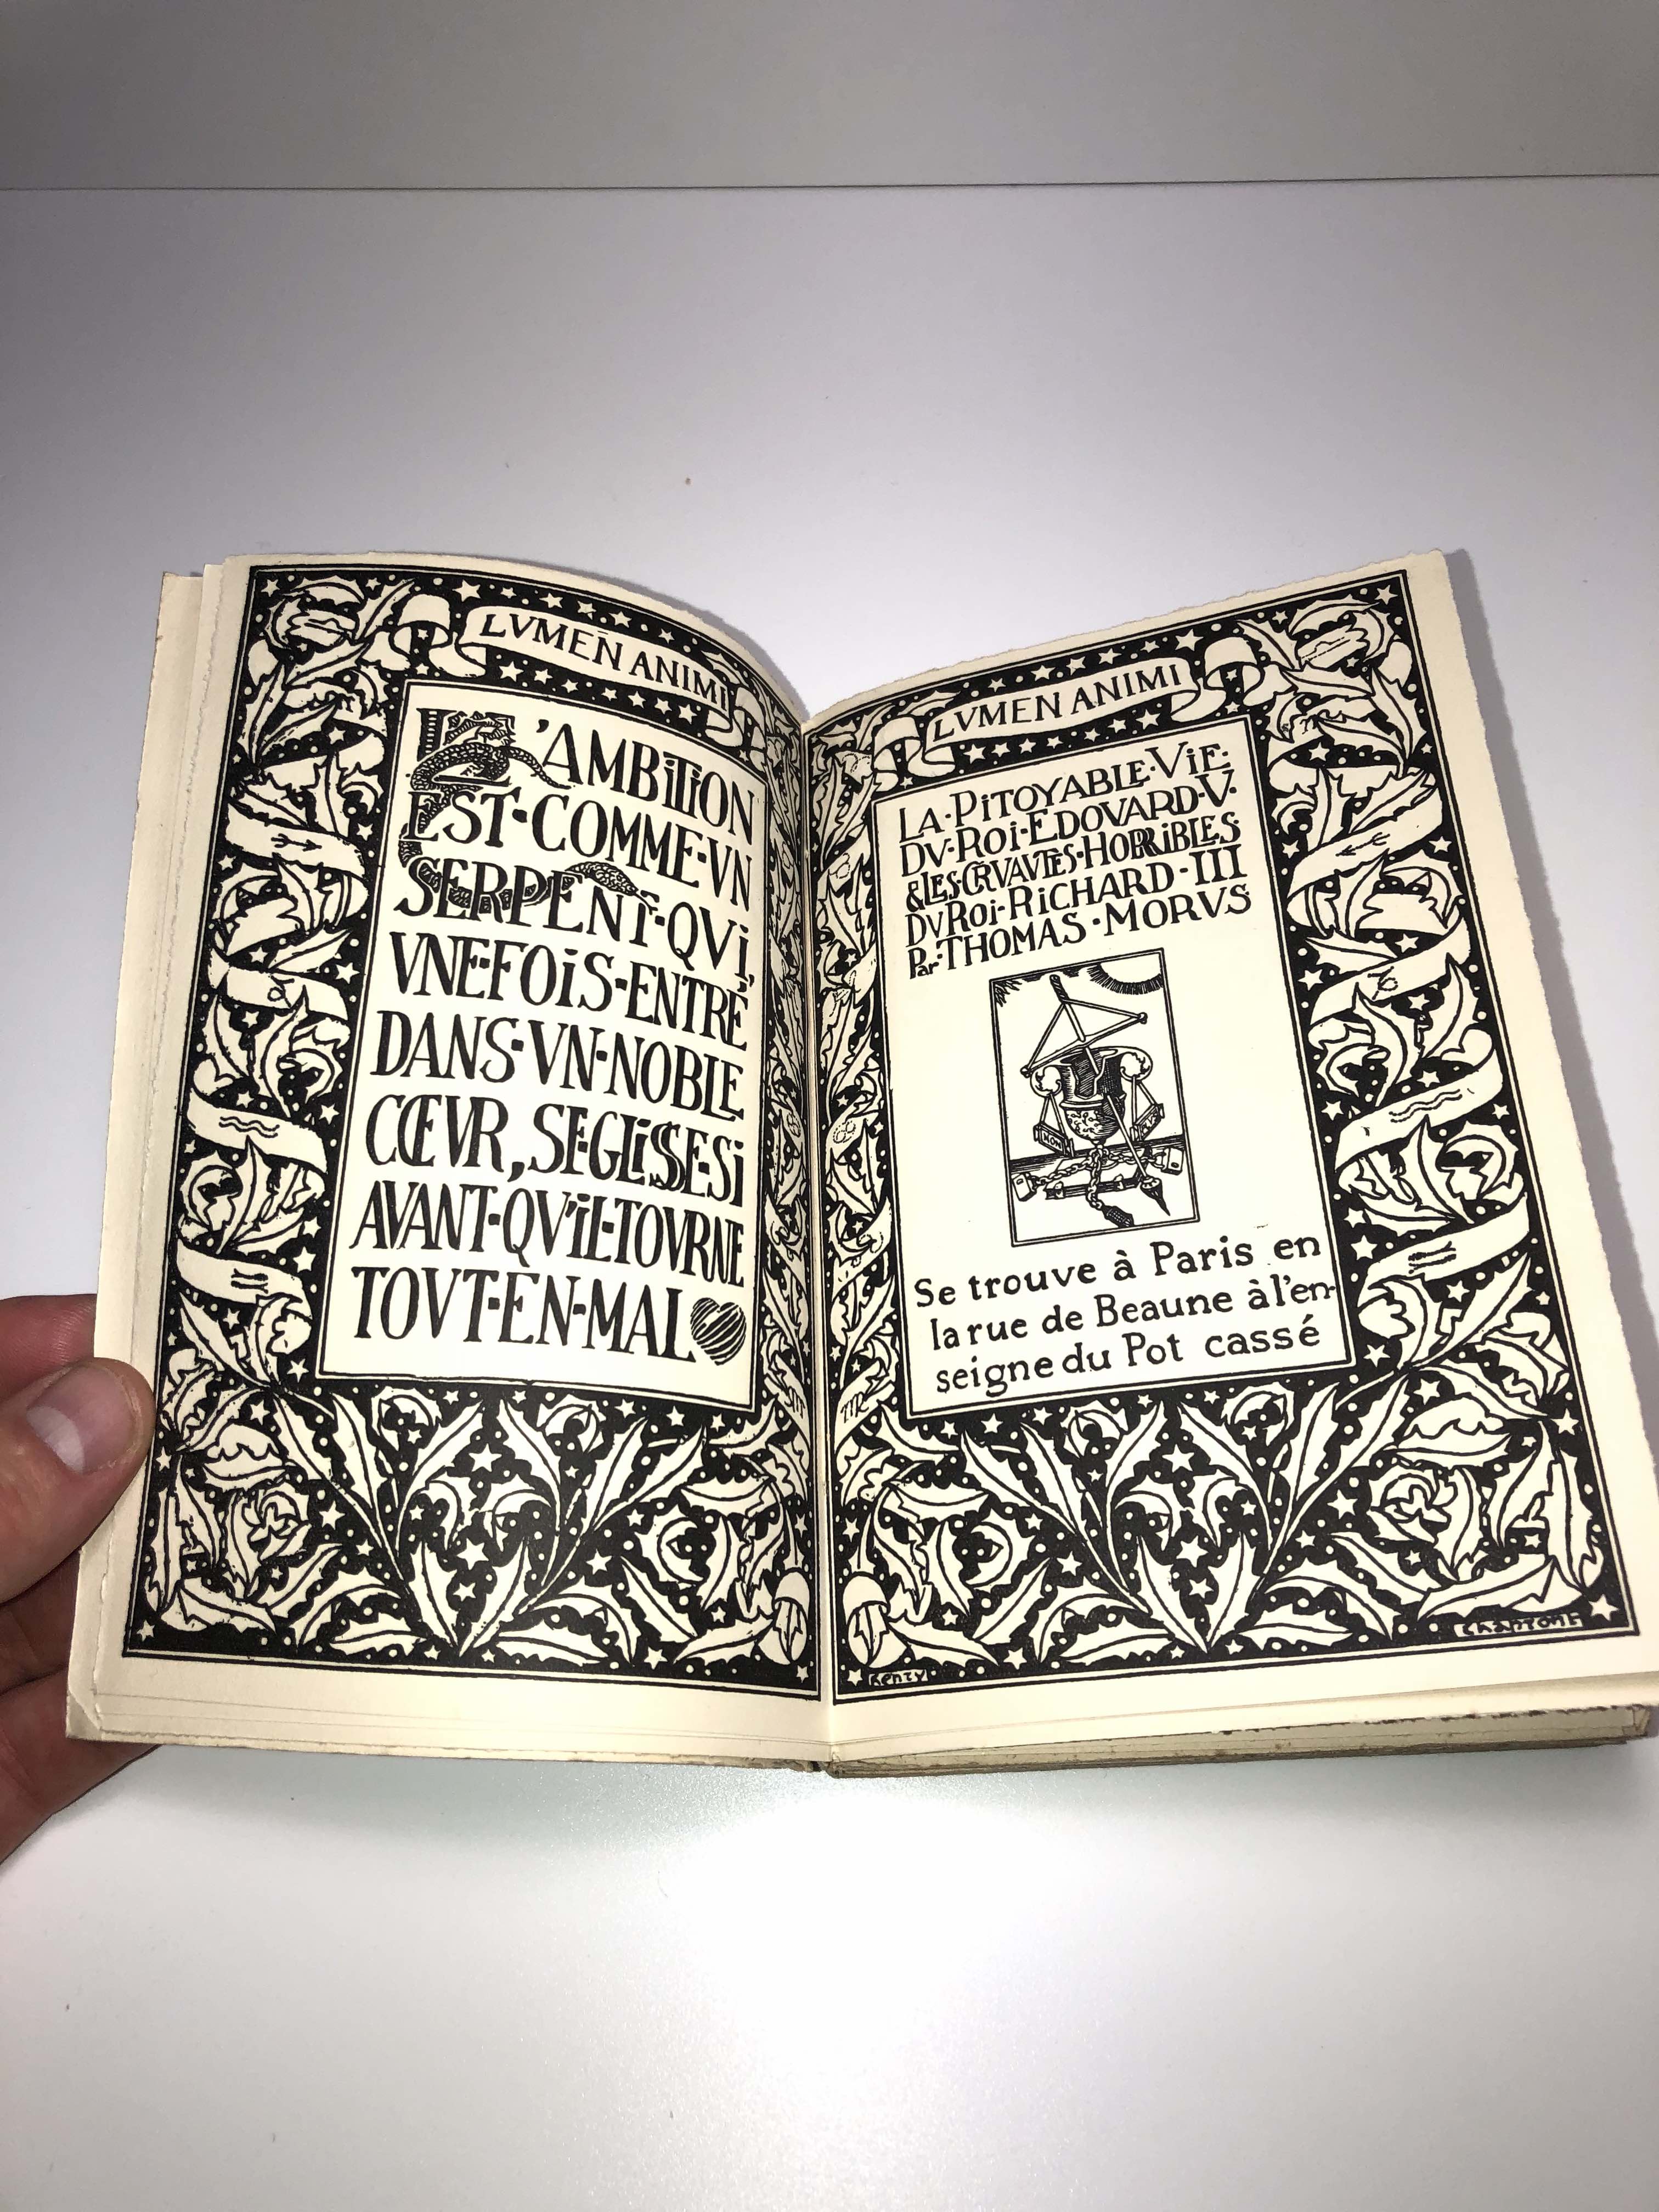 LVMEN ANIMI
L'AMBITION
EST·COMME·VN
SERPENT·QVI,
VNE·FOIS·ENTRÉ
DANS·VN·NOBLE
CŒVR, SE·GLISSE·SI
AVANT·QV'IL·TOVRNE
TOVT·EN·MAL
LVMEN ANIMI
LA·PITOYABLE·VIE·
DV·ROI·EDOVARD·V·
&LES·CRVAVTES·HORRIBLES
DV ROI·RICHARD·III
Par·THOMAS·MORVS
NON
Se trouve à Paris en
la rue de Beaune à l'en-
seigne du Pot cassé
henry
chapront